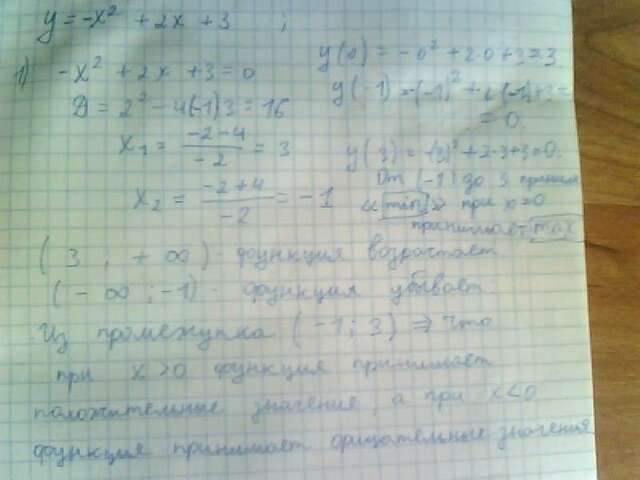 y = -x² + 2x + 3 ;
1) -x² + 2x + 3 = 0
D = 2² - 4(-1)3 = 16
x₁ = (-2-4)/(-2) = 3
x₂ = (-2+4)/(-2) = -1
y(0) = -0² + 2·0 + 3 = 3
y(-1) = -(-1)² + 2(-1)+3 =
= 0.
y(3) = -(3)² + 2·3+3=0.
От (-1) до 3 приним
« min » при x=0
принимает max
(3 ; +∞) - функция возрастает
(-∞ ; -1) - функция убывает.
Из промежутка (-1; 3) ⇒ что
при x>0 функция принимает
положительные значения, а при x<0
функция принимает орицательные значения